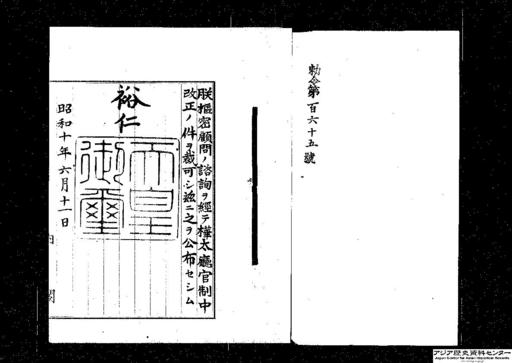 勅令第百六十五號
朕樞密顧問ノ諮詢ヲ經テ樺太廳官制中
改正ノ件ヲ裁可シ茲ニ之ヲ公布セシム
裕仁
天皇
御璽
昭和十年六月十一日
アジア歴史資料センター
Japan Center for Asian Historical Records